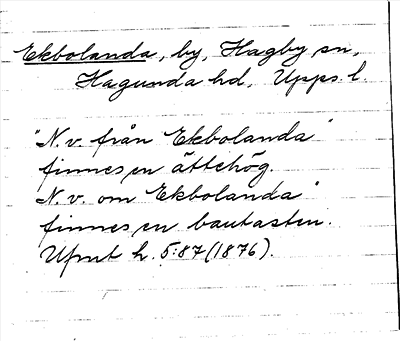 Ekbolanda, by, Hagby sn,
Hagunda hd, Upps. l.
"N. v. från Ekbolanda"
finnes en ättehög.
N. v. om Ekbolanda"
finnes en bautasten.
Upmt h. 5:87 (1876).